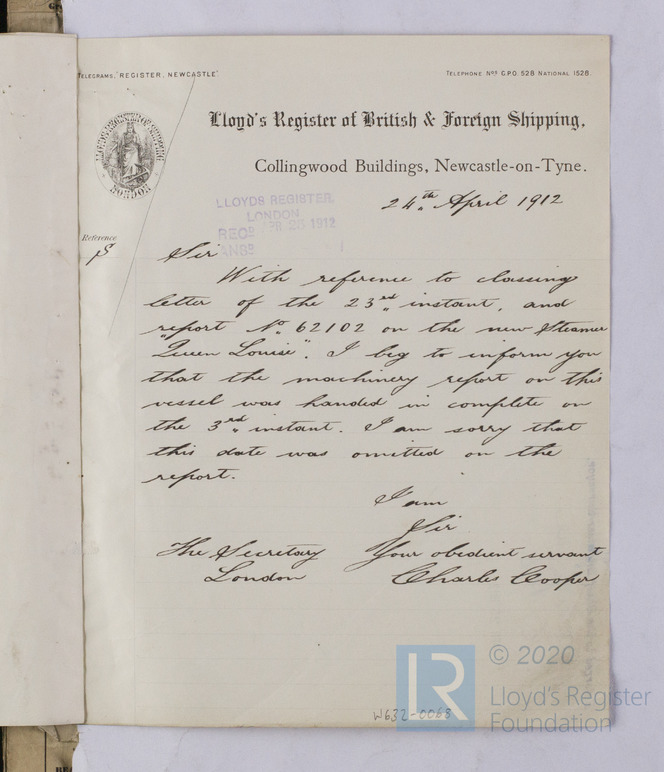 TELEGRAMS, "REGISTER, NEWCASTLE".
TELEPHONE Nos G.P.O. 528 NATIONAL 1528.
Lloyd's Register of British & Foreign Shipping.
Collingwood Buildings, Newcastle-on-Tyne.
LONDON
24th April 1912
LLOYDS REGISTER,
LONDON
RECD APR 25 1912
ANSD
Reference
Sir
With reference to classing
letter of the 23rd instant, and
report No 62102 on the new Steamer
"Queen Louise". I beg to inform you
that the machinery report on this
vessel was handed in complete on
the 3rd instant. I am sorry that
this date was omitted on the
report.
I am
Sir
The Secretary Your obedient servant
London Charles Cooper
W632-0068
LR © 2020
Lloyd's Register
Foundation